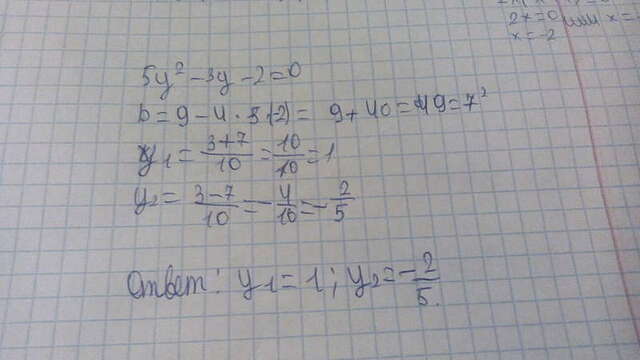 2x=0 или x=
x=-2
5y²-3y-2=0
D=9-4·5·(-2)= 9+40=49=7²
y₁=3+7/10=10/10=1
y₂=3-7/10=-4/10=-2/5
Ответ: y₁=1; y₂=-2/5.